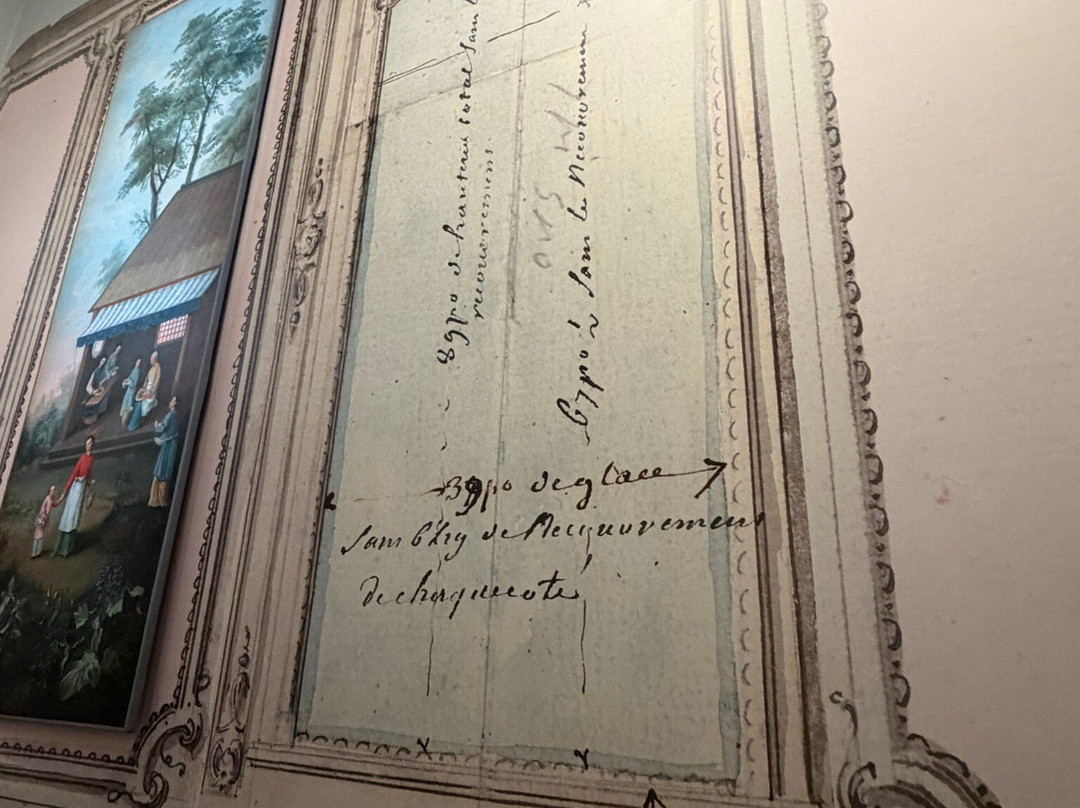 89po de hauteur total sans
recouvremens
sans le Recouvremens
39po de glace
sans de Recquovremens
de chaque coté